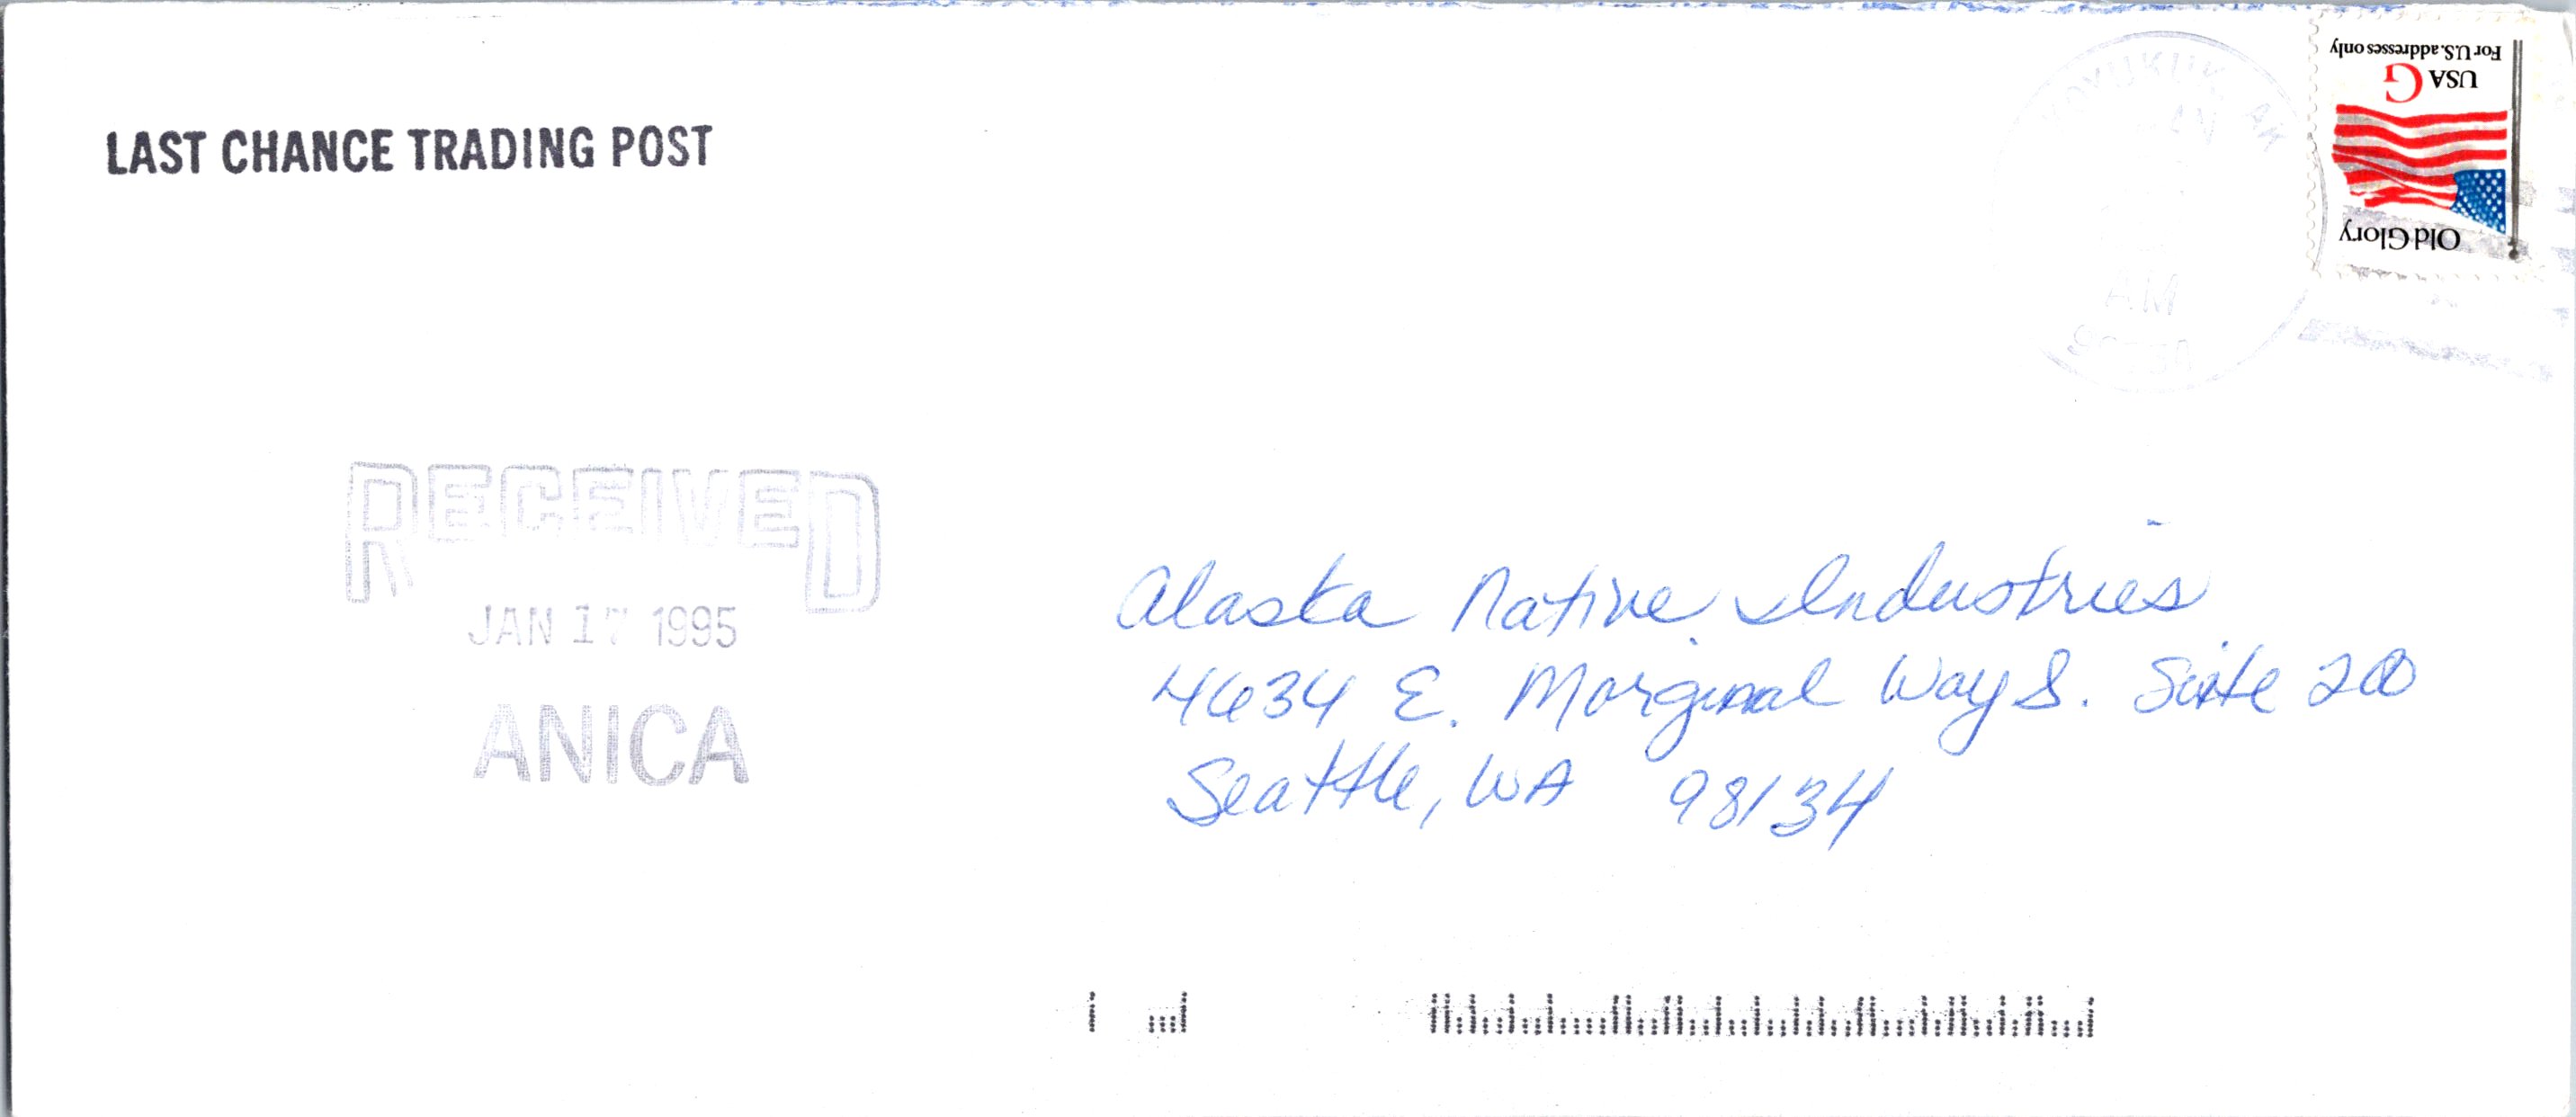 LAST CHANCE TRADING POST
KOYUKUK AK
AM
For U.S. addresses only
USA G
Old Glory
RECEIVED
JAN 17 1995
ANICA
Alaska Native Industries
4634 E. Marginal Way S. Suite 200
Seattle, WA 98134